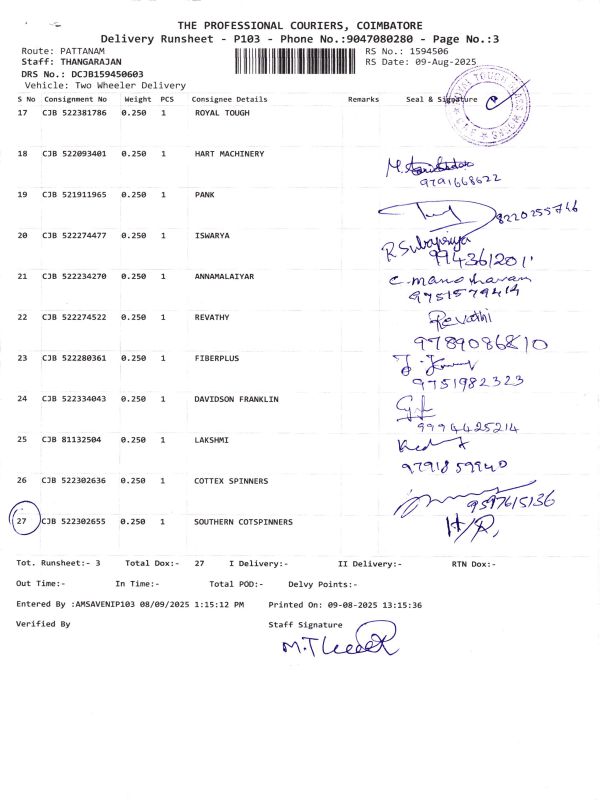 THE PROFESSIONAL COURIERS, COIMBATORE
Delivery Runsheet - P103 - Phone No.:9047080280 - Page No.:3
Route: PATTANAM RS No.: 1594506
Staff: THANGARAJAN RS Date: 09-Aug-2025
DRS No.: DCJB159450603
Vehicle: Two Wheeler Delivery
S No Consignment No Weight PCS Consignee Details Remarks Seal & Signature
17 CJB 522381786 0.250 1 ROYAL TOUGH
18 CJB 522093401 0.250 1 HART MACHINERY
9791668622
19 CJB 521911965 0.250 1 PANK
8220255746
20 CJB 522274477 0.250 1 ISWARYA
R Subapriya
9943612011
21 CJB 522234270 0.250 1 ANNAMALAIYAR
C. manoharan
9751579414
22 CJB 522274522 0.250 1 REVATHY
Revathi
9789086810
23 CJB 522280361 0.250 1 FIBERPLUS
9751982323
24 CJB 522334043 0.250 1 DAVIDSON FRANKLIN
9994425214
25 CJB 81132504 0.250 1 LAKSHMI
9791859940
26 CJB 522302636 0.250 1 COTTEX SPINNERS
9597615136
27 CJB 522302655 0.250 1 SOUTHERN COTSPINNERS
Tot. Runsheet:- 3 Total Dox:- 27 I Delivery:- II Delivery:- RTN Dox:-
Out Time:- In Time:- Total POD:- Delvy Points:-
Entered By :AMSAVENIP103 08/09/2025 1:15:12 PM Printed On: 09-08-2025 13:15:36
Verified By Staff Signature